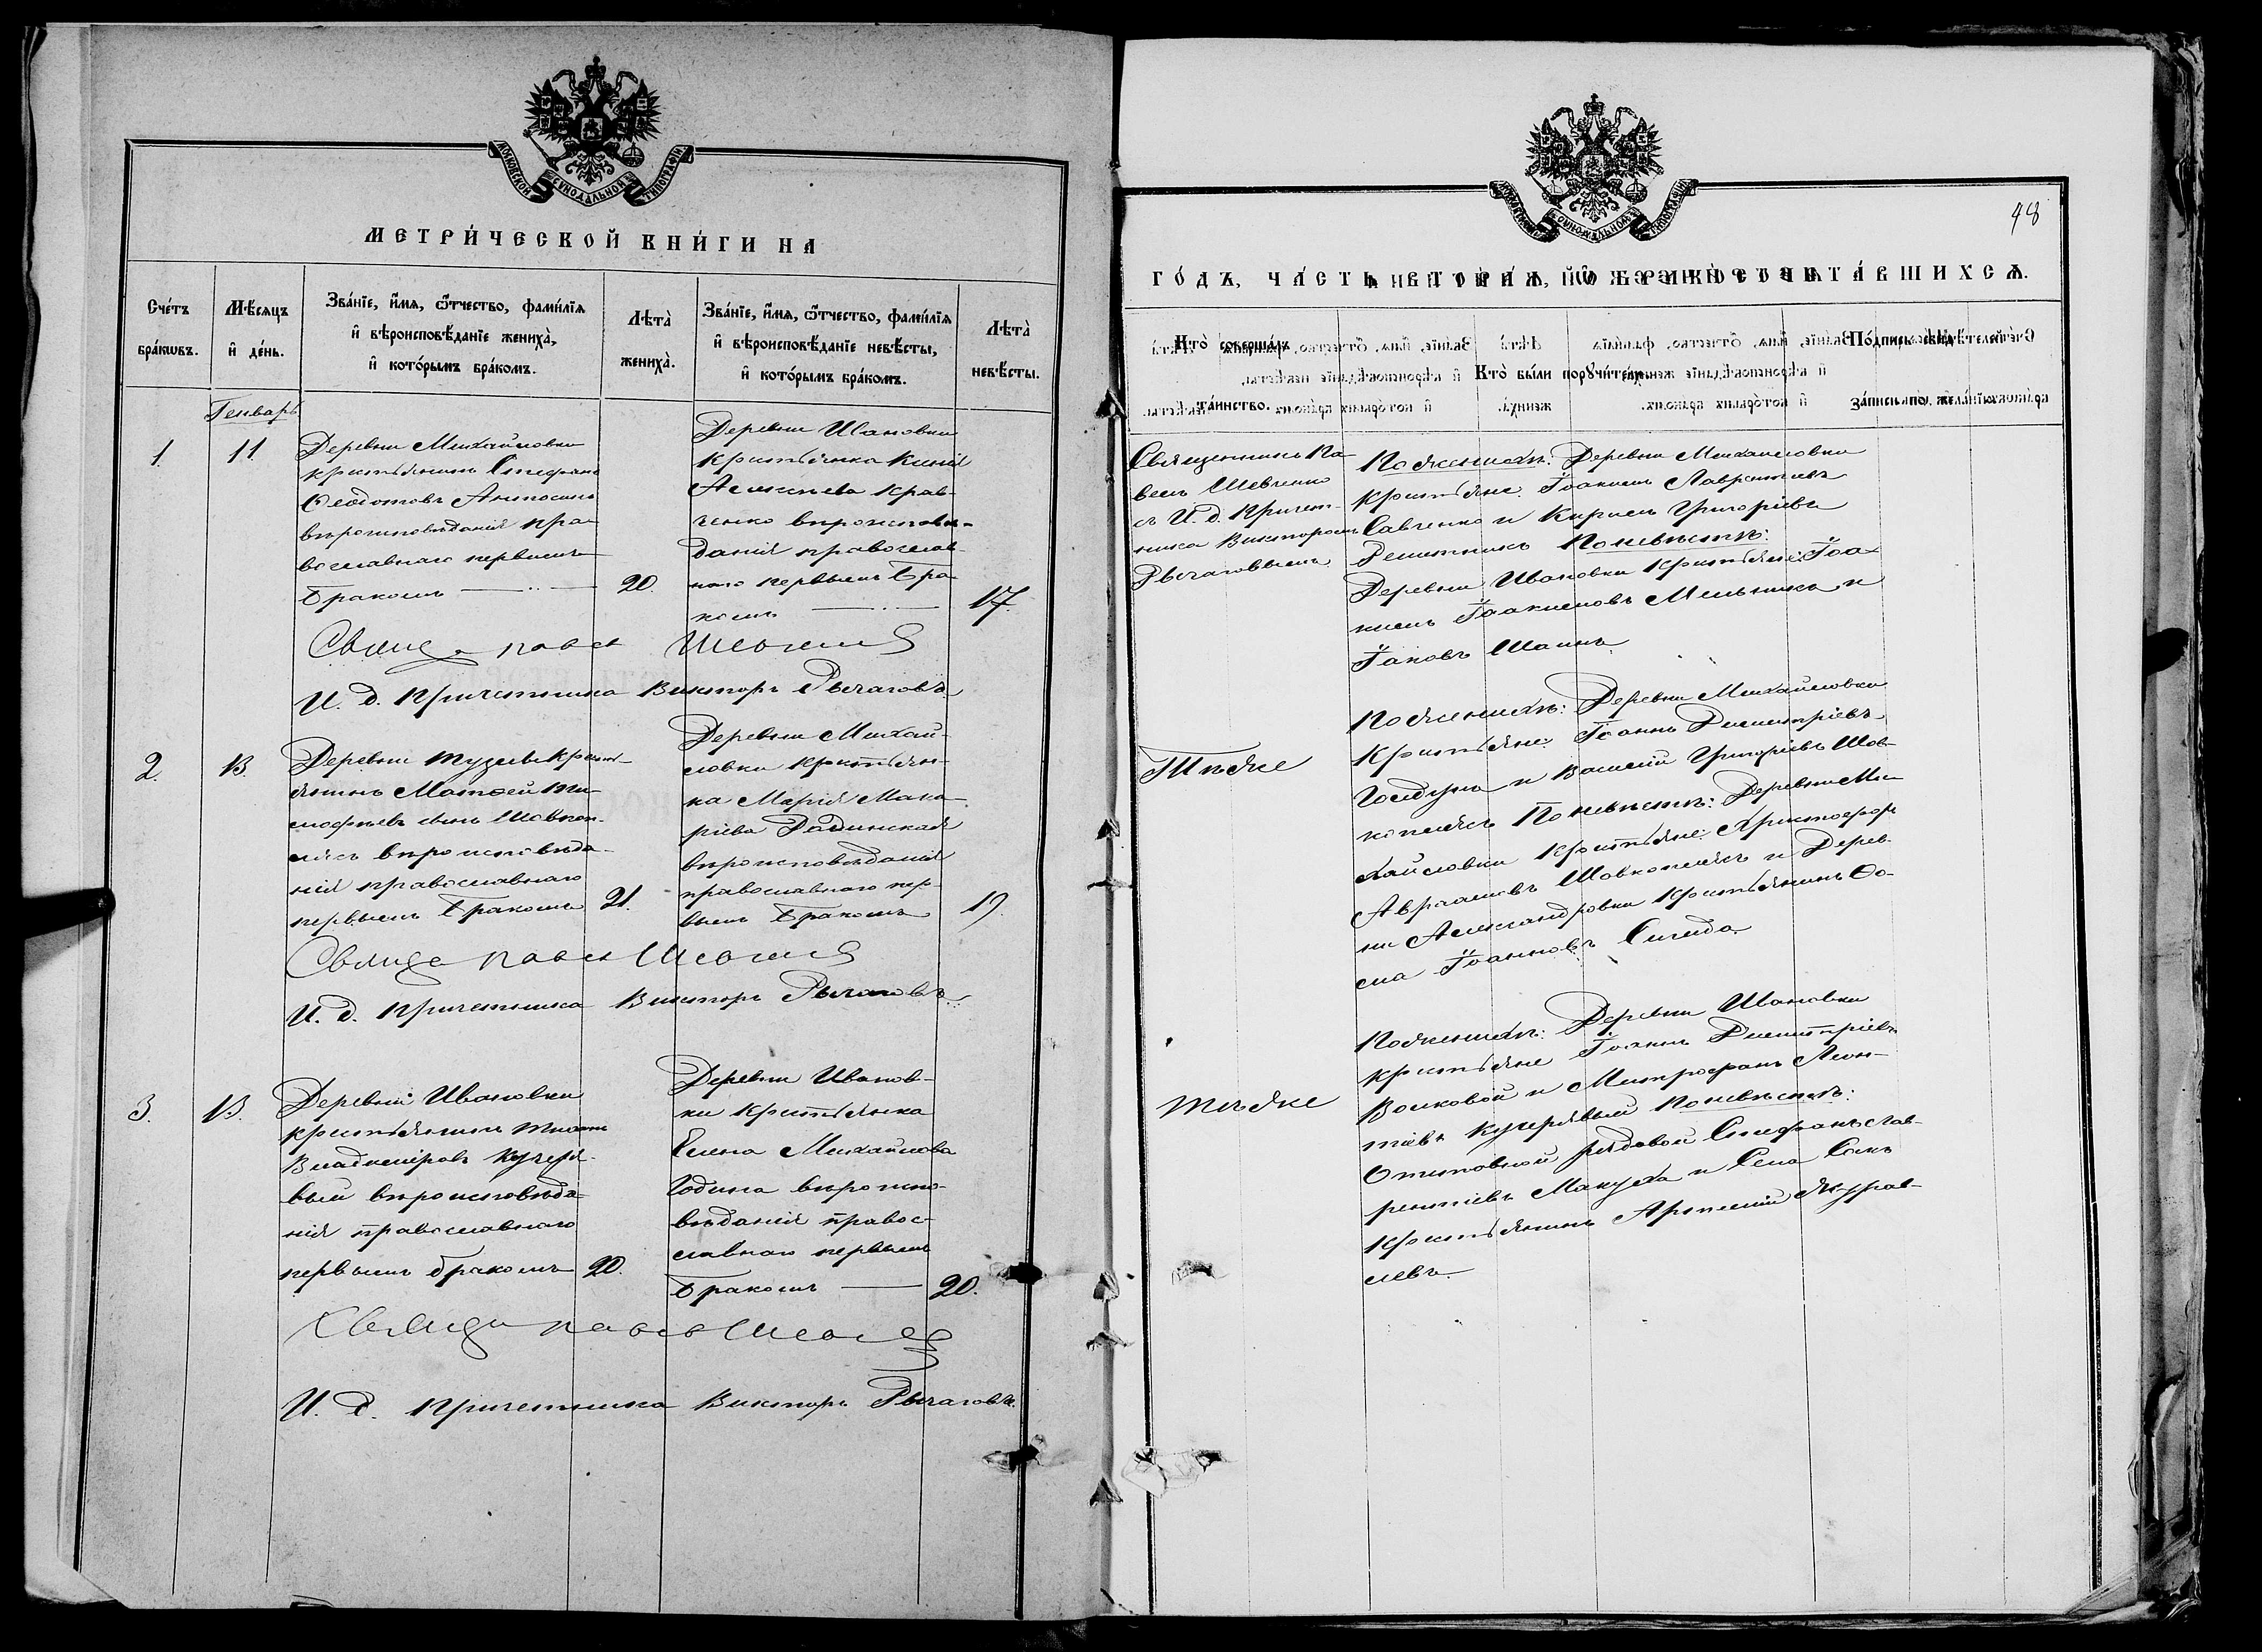 МОСКОВСКОЙ СѴНОДАЛЬНОЙ ТИПОГРАФІИ
МЕТРИ́ЧЕСКОЙ КНИ́ГИ НА
Сче́тъ бра́кѡвъ.
Мѣ́сяцъ и҆ де́нь.
Зва́нїе, и҆́мѧ, ѻ҆́тчество, фами́лїѧ
и҆ вѣроисповѣ́данїе жениха̀,
и҆ кото́рымъ бра́комъ.
Лѣта̀ жениха̀.
Зва́нїе, и҆́мѧ, ѻ҆́тчество, фами́лїѧ
и҆ вѣроисповѣ́данїе невѣ́сты,
и҆ кото́рымъ бра́комъ.
Лѣта̀ невѣ́сты.
Генварь
1.
11
Деревни Михайловки
крестьянинъ Стефанъ
Ѳеодотовъ
вѣроисповѣданія пра-
вославнаго первымъ
бракомъ
20.
Деревни Ивановки
крестьянка
Алексѣева Крав-
ченко вѣроисповѣ-
данія православ-
наго первымъ бра-
комъ
17
Священ Павелъ Шевченко
И. д. Причетника Викторъ Рычаговъ
2.
13.
Деревни Тузлы крест-
янинъ Матѳей Ти-
моѳѣевъ сынъ Шовкоп-
лясъ вѣроисповѣда-
нія православнаго
первымъ бракомъ
21.
Деревни Михай-
ловки крестьян-
ка Марія Мака-
рiева Радинская
вѣроисповѣданія
православнаго пер-
вымъ бракомъ
19.
Священ Павелъ Шевченко
И. д. Причетника Викторъ Рычаговъ
3.
13.
Деревни Ивановки
крестьянинъ
Владиміровъ Кучеря-
вый вѣроисповѣда-
нія православнаго
первымъ бракомъ
20.
Деревни Иванов-
ки крестьянка
Елена Михайлова
Година вѣроиспо-
вѣданія правос-
лавнаго первымъ
бракомъ
20.
Священ Павелъ Шевченко
И. д. Причетника Викторъ Рычаговъ
48
ГО́ДЪ, ЧА́СТЬ ВТОРА́Ѧ, Ѡ҆ БРАКОСОЧЕТА́ВШИХСѦ.
Кто̀ соверша́лъ
та́инство.
Кто̀ бы́ли порꙋчи́тели.
По́дпись
за́писи по жела́нїю.
Священникъ Па-
велъ Шевченко
съ И. д. Причет-
ника Викторомъ
Рычаговымъ
По женихѣ: Деревни Михайловки
крестьяне: Іоакимъ Лаврентіевъ
Савченко и Кирилъ Григоріевъ
Решетникъ По невѣстѣ:
Деревни Ивановки крестьяне: Іоа-
кимъ Іоакимовъ Мельникъ и
Іаковъ
Тѣже
По женихѣ: Деревни Михайловки
крестьяне: Іоаннъ Димитріевъ
Голдунъ и Василій Григоріевъ Шов-
коплясъ По невѣстѣ: Деревни Ми-
хайловки крестьяне: Христофоръ
Авраамовъ Шовкоплясъ и Дерев-
ни Александровки крестьянинъ Ѳо-
ма Іоанновъ Сигида
тѣже
По женихѣ: Деревни Ивановки
крестьяне Іоаннъ Димитріевъ
Волковой и Митрофанъ Леон-
тіевъ Кучерявый По невѣстѣ:
Отставной рядовой Стефанъ Лав-
рентіевъ Макуха и Села
крестьянинъ Арсеній Журав-
левъ.